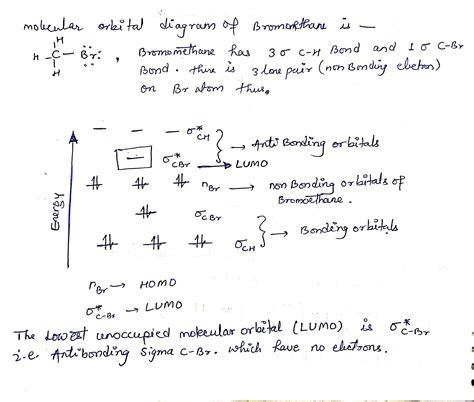 molecular orbital diagram of Bromomethane is —
H
H - C - Br: , Bromomethane has 3 σ C-H Bond and 1 σ C-Br
H
Bond. there is 3 lone pair (non Bonding electron)
on Br atom thus,
σ*CH → Anti Bonding orbitals
σ*CBr → LUMO
nBr → non Bonding orbitals of
Bromoethane.
σCBr
σCH → Bonding orbitals
Energy
nBr → HOMO
σ*C-Br → LUMO
The Lowest unoccupied molecular orbital (LUMO) is σ*C-Br
i.e. Antibonding sigma C-Br. which have no electrons.